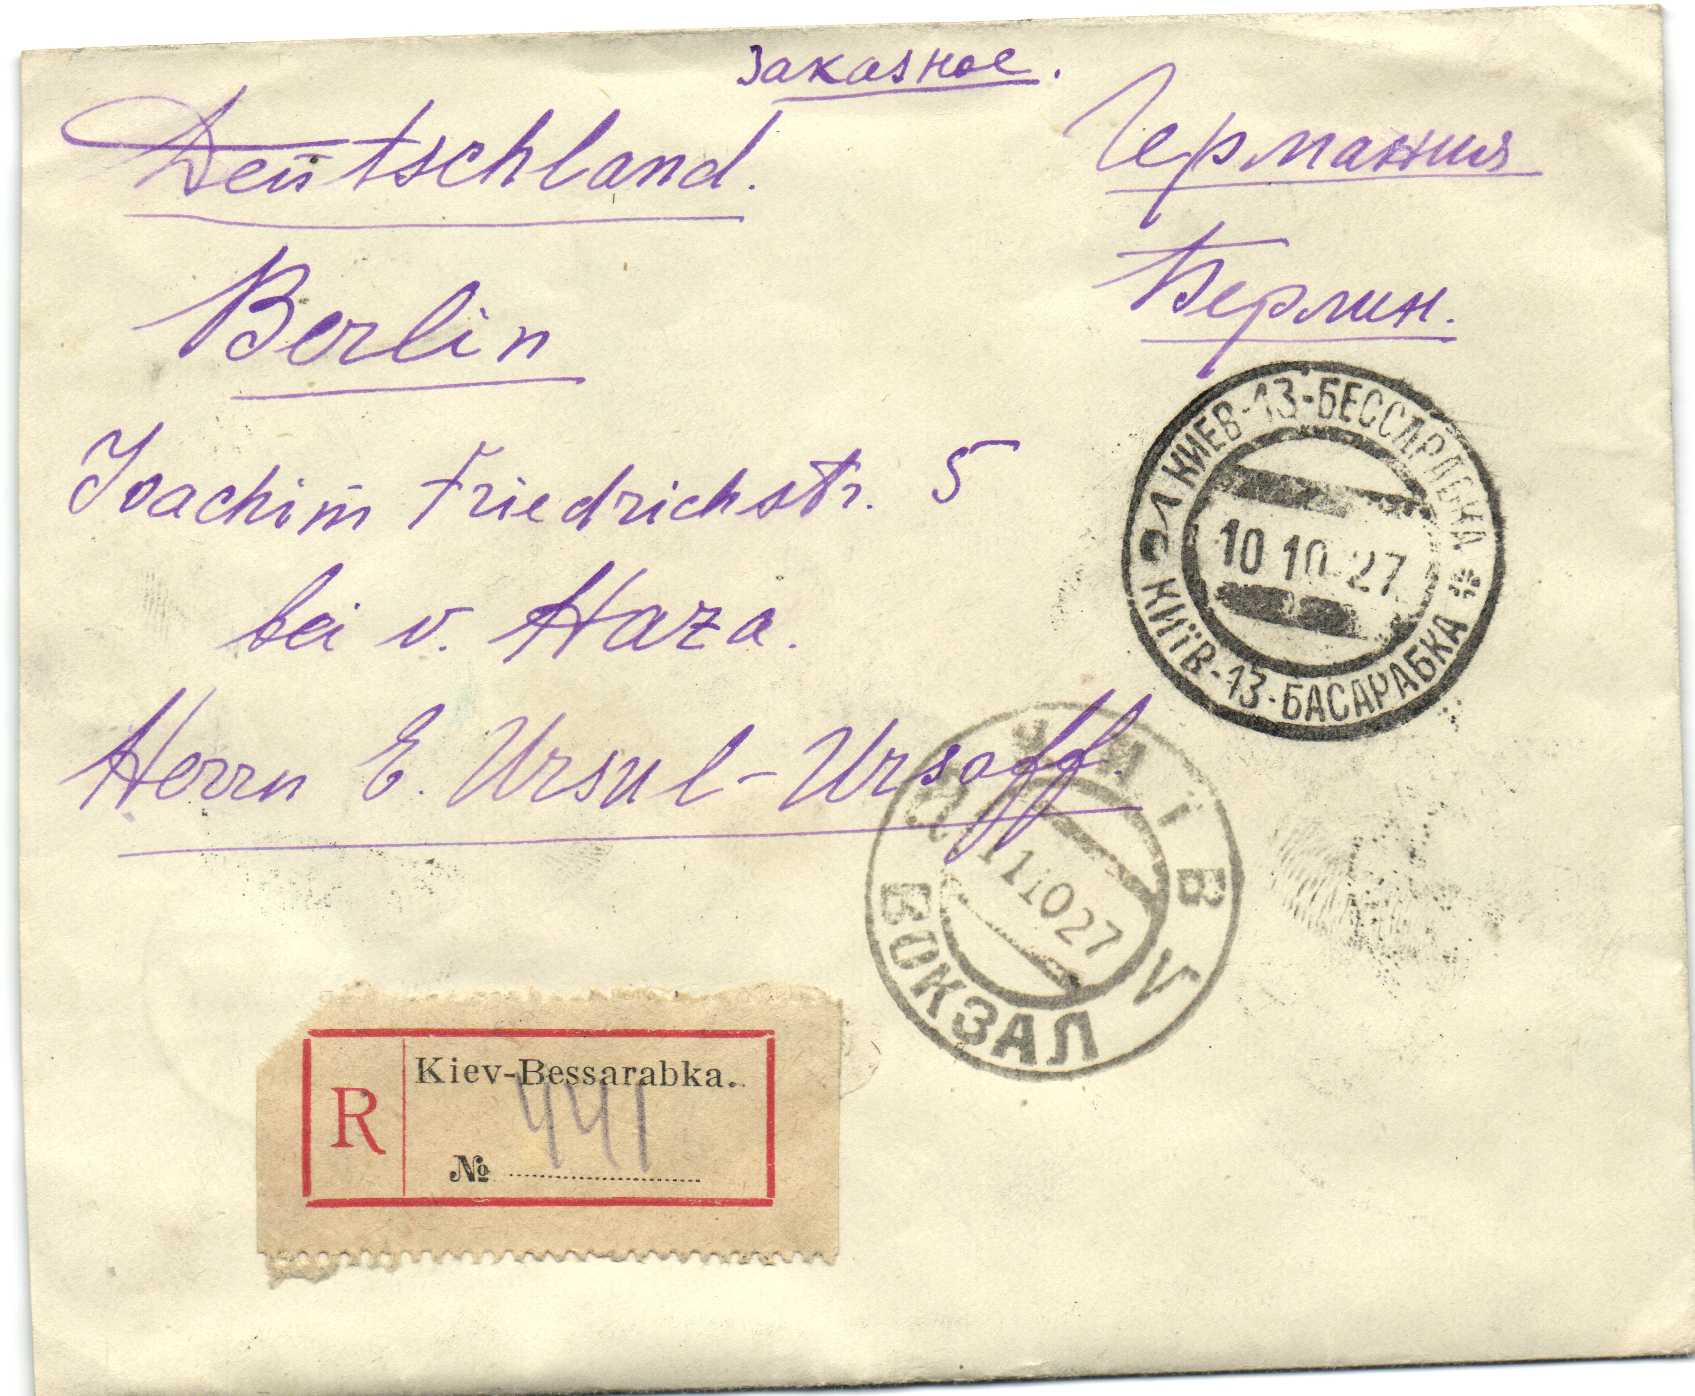 Заказное.
Deutschland.
Германия
Berlin
Берлин.
Joachim Friedrichstr. 5
bei v. Haza.
Herrn E. Ursul-Ursoff.
КИЕВ-13-БЕССАРАБКА
10 10 27
КИЇВ-13-БАСАРАБКА
11 10 27
ВОКЗАЛ
R
Kiev-Bessarabka.
№ 441